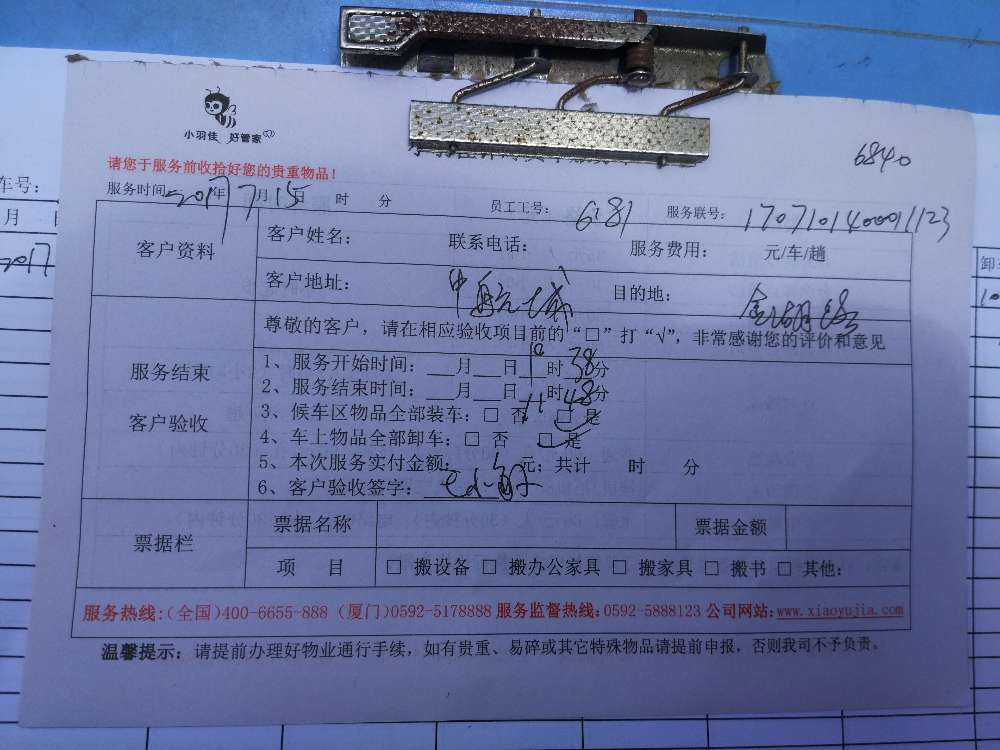 小羽佳 好管家
6840
请您于服务前收拾好您的贵重物品！
服务时间 2017年7月15日 时 分 员工工号： 6181 服务联号： 170710140001123
客户资料
客户姓名： 联系电话： 服务费用： 元/车/趟
客户地址： 中航城 目的地： 金湖路
服务结束
客户验收
尊敬的客户，请在相应验收项目前的“□”打“√”，非常感谢您的评价和意见
1、服务开始时间：___月___日 10时 38分
2、服务结束时间：___月___日 11时 48分
3、候车区物品全部装车：□ 否 □ 是
4、车上物品全部卸车：□ 否 □ 是
5、本次服务实付金额： 元；共计 时 分
6、客户验收签字：
票据栏
票据名称 票据金额
项 目 □ 搬设备 □ 搬办公家具 □ 搬家具 □ 搬书 □ 其他：
服务热线：(全国)400-6655-888 (厦门)0592-5178888 服务监督热线：0592-5888123 公司网站：www.xiaoyujia.com
温馨提示：请提前办理好物业通行手续，如有贵重、易碎或其它特殊物品请提前申报，否则我司不予负责。
车号：
月
2017
卸